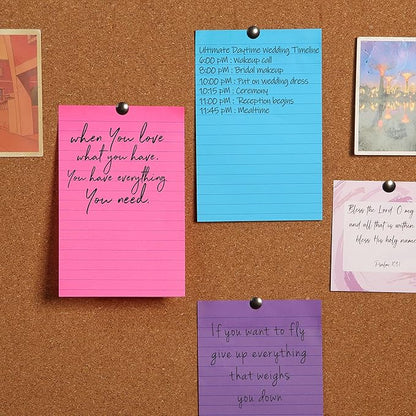 Ultimate Daytime Wedding Timeline
6:00 pm : Wakeup call
8:00 pm : Bridal makeup
10:00 pm : Put on wedding dress
10:15 pm : Ceremony
11:00 pm : Reception begins
11:45 pm : Mealtime
when You love
what you have.
You have everything
You need.
Bless the Lord O my
and all that is within
bless His holy name
Psalm 103:1
If you want to fly
give up everything
that weighs
you down